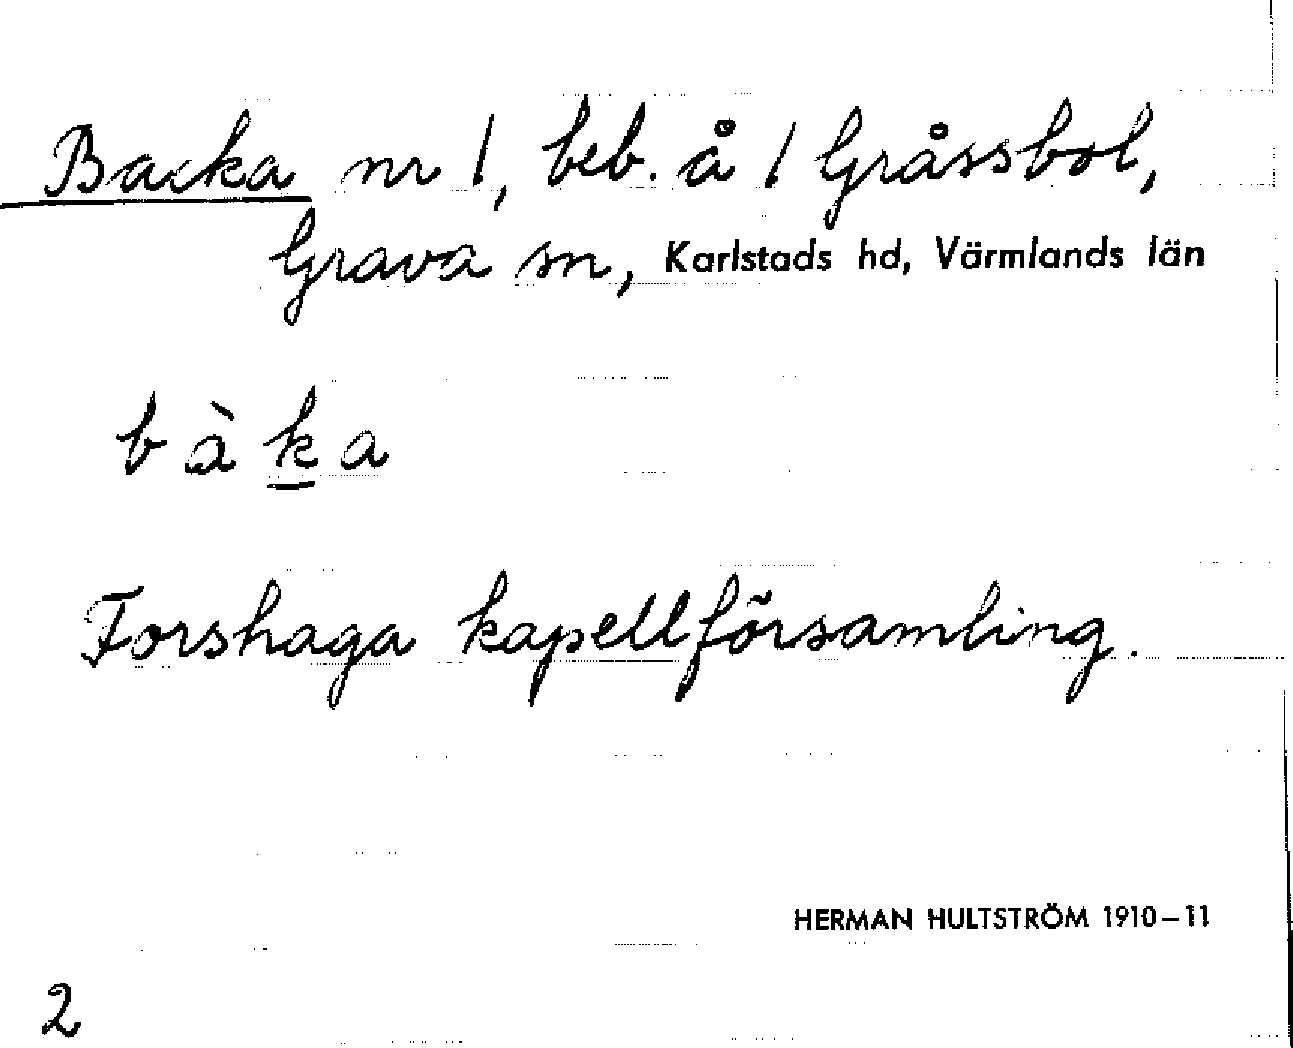 Backa nr 1, beb. å 1 Gråssbol,
Grava sn, Karlstads hd, Värmlands län
bàk̲a
Forshaga kapellförsamling.
HERMAN HULTSTRÖM 1910–11
2